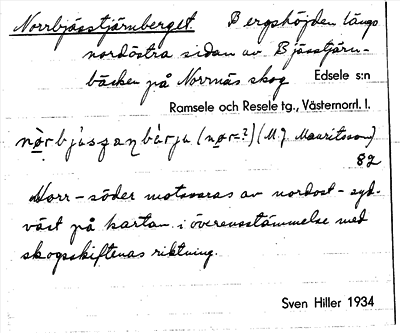 Norrbjässtjärnberget Bergshöjden längs
nordöstra sidan av Bjässtjärn-
bäcken på Norrnäs skog Edsele s:n
Ramsele och Resele tg., Västernorrl. l.
(nør=?) (M.J. Mauritsson)
82
Norr – söder motsvaras av nordost – syd-
väst på kartan i överensstämmelse med
skogsskiftenas riktning.
Sven Hiller 1934